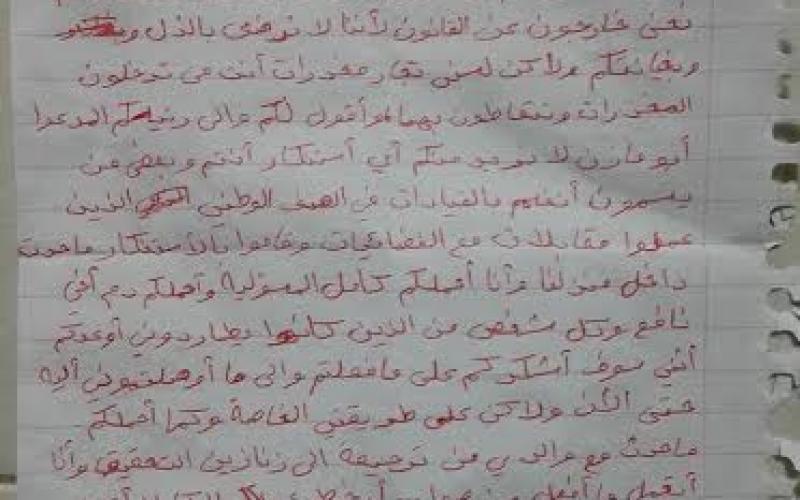 نحن خارجون عن القانون لأننا لا نرضى بالذل
وبخيانتكم ولاكن لسنى تجار مخدرات أنت من تدخلون
المخدرات وتتعاطون بها وأقول لكم والى رئيسكم المدعوا
أبو مازن لا نريد منكم أي أستنكار أنتم وبعض من
يسمون أنفسهم بالقيادات في الصف الوطني الذين
عملوا مقابلات مع الفضائيات وقاموا بالأستنكار ماحدث
داخل منزلنا وأنا أحملكم كامل المسؤلية وأحملكم دم أخي
نافع وكل شخص من الذين كانوا يطاردوني أوعدكم
أنني سوف أشكركم على مافعلتم والى ما أوصلتموني أليه
حتى الأن ولاكن على طريقتي الخاصة وكما أحملكم
ماحدث مع والدي من توجيهة الى زنازين التحقيق وأنا